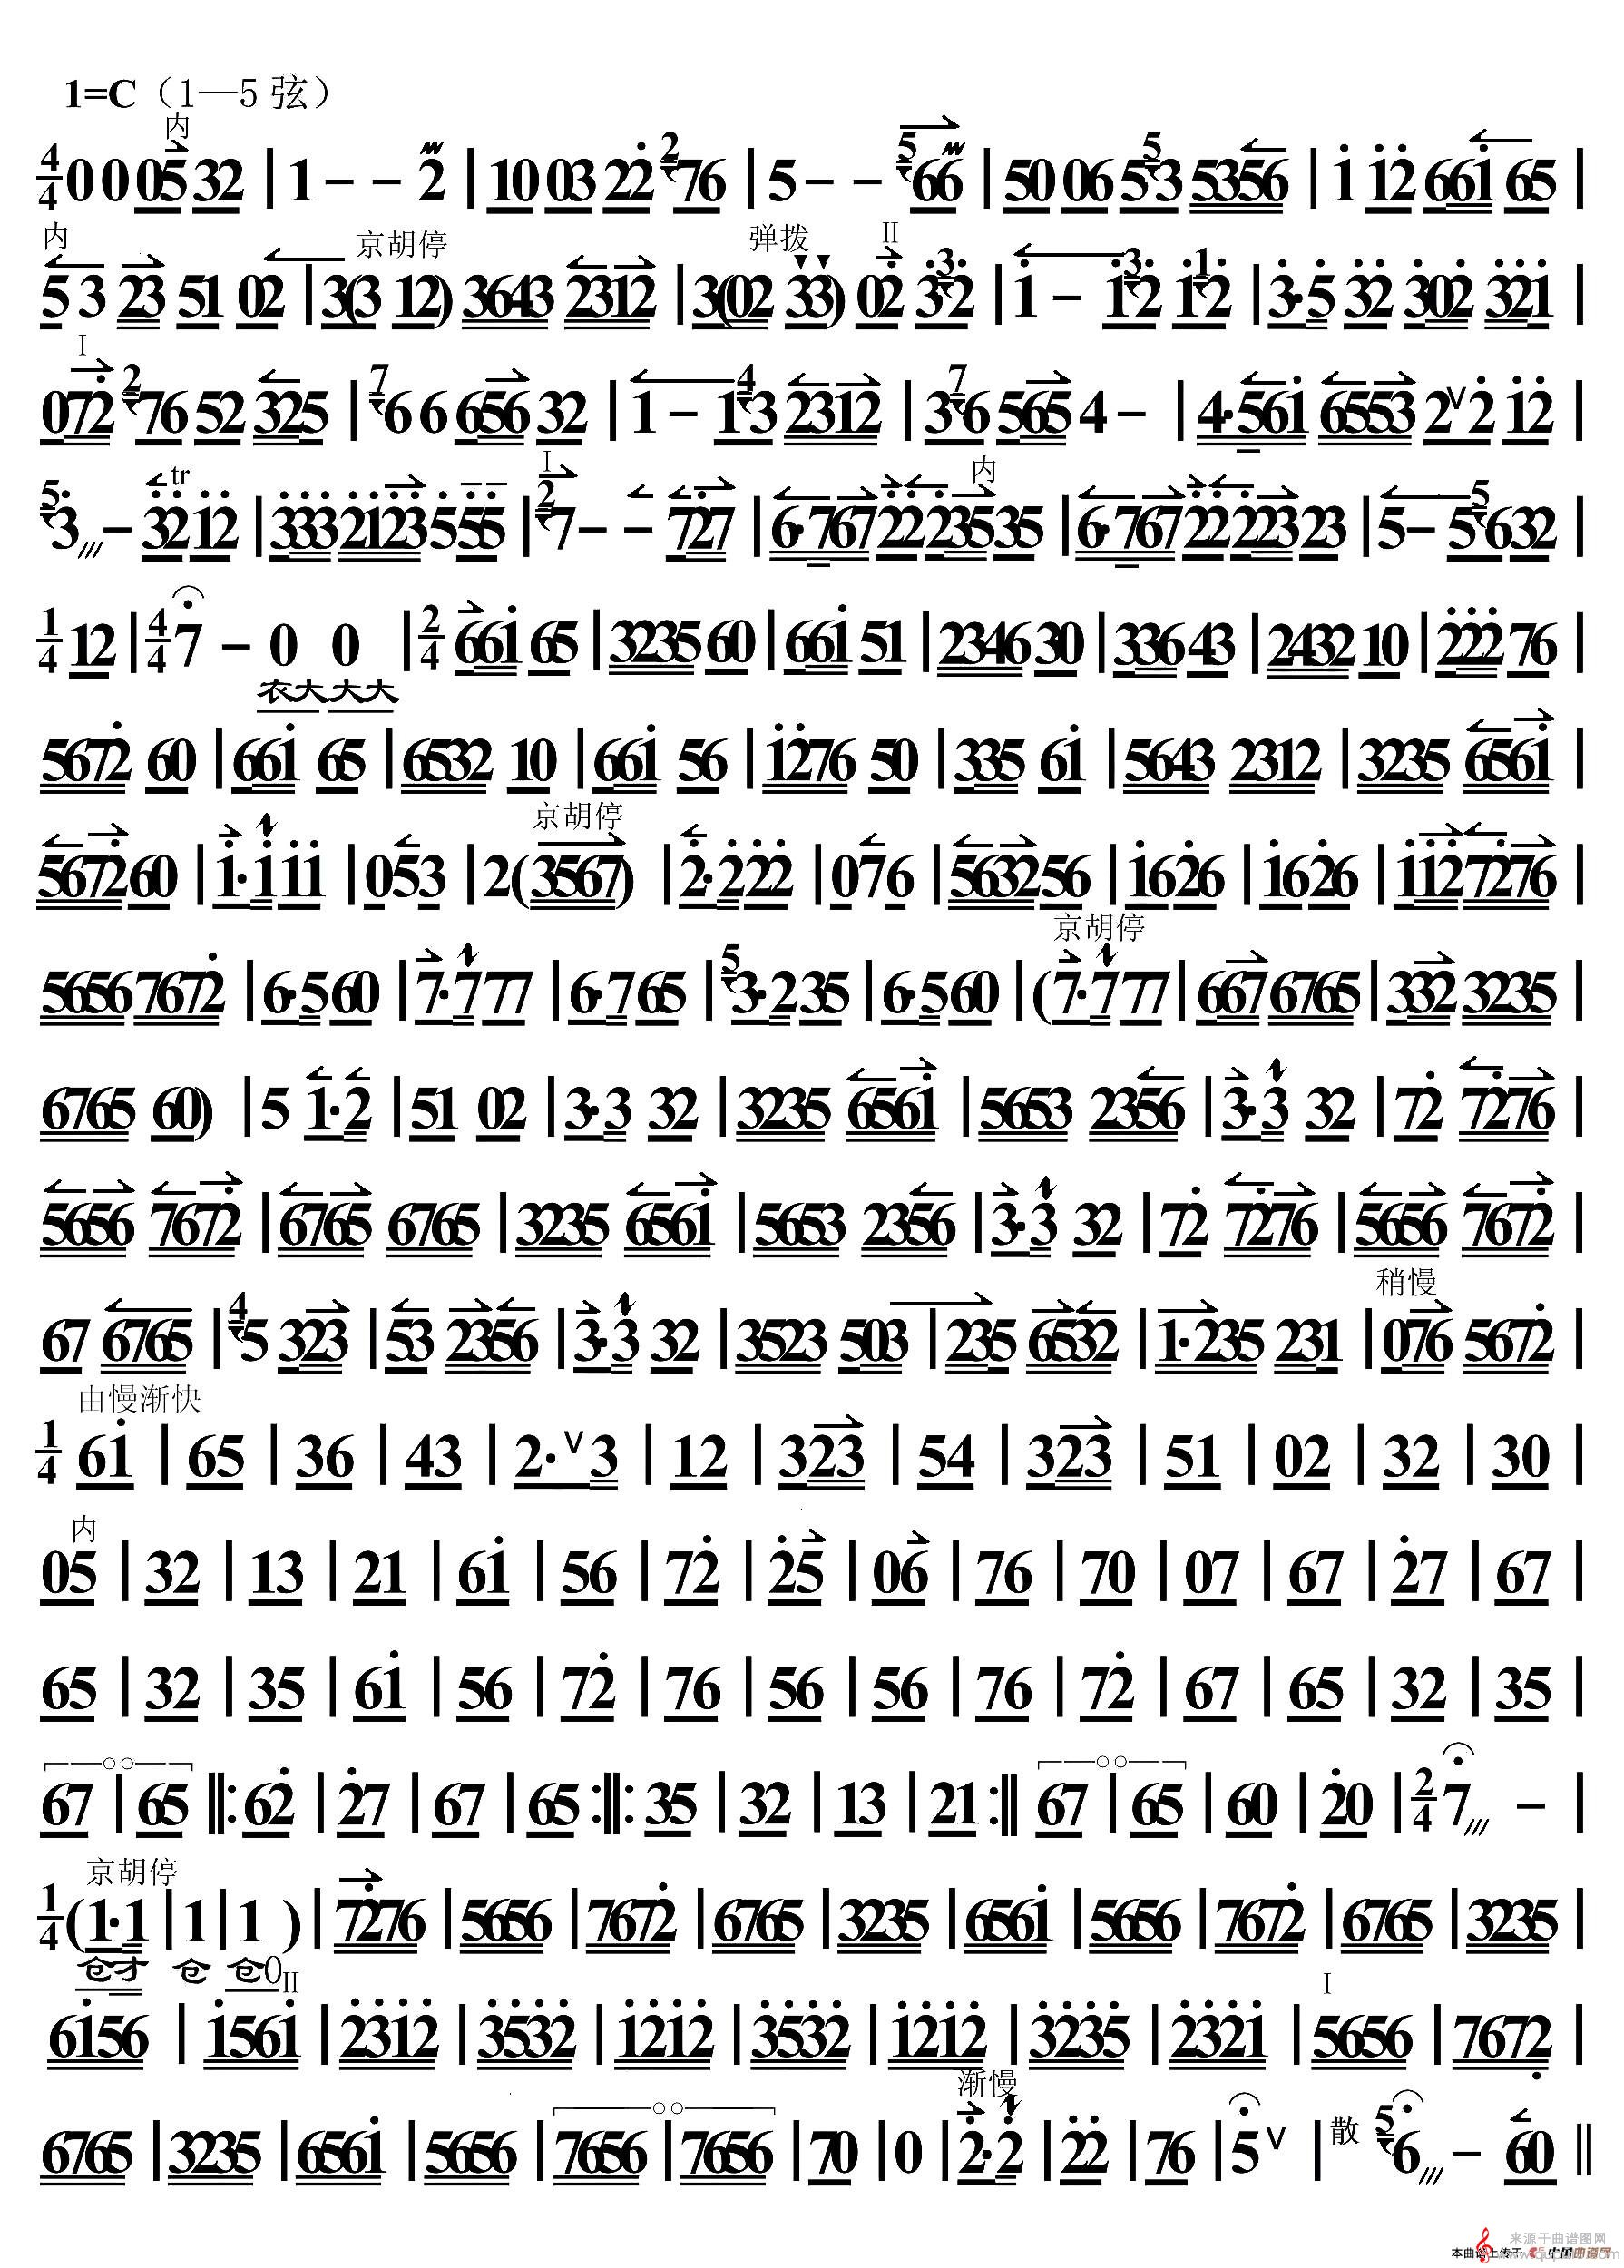 1=C（1—5 弦）
内
4/4 0 0 05 32 | 1 - - 2 | 10 03 22 2 76 | 5 - - 5 66 | 50 06 5 5 3 5356 | 1 12 661 65 |
内 京胡停 弹拨 II
5 3 23 51 02 | 3(3 12) 3643 2312 | 3(02 33) 02 3 3 2 | 1 - 1 3 2 1 1 2 | 3·5 32 302 321 |
I
072 2 76 52 325 | 7 6 6 656 32 | 1 - 1 4 3 2312 | 3 7 6 565 4 - | 4·561 6553 2 V 2 12 |
tr I 内
5 3 - 3212 | 333 2123 5 555 | 2 7 - - 727 | 6·767 22 235 35 | 6·767 22 223 23 | 5 - 5 5 632 |
1/4 12 | 4/4 7 - 0 0 | 2/4 661 65 | 3235 60 | 661 51 | 2346 30 | 336 43 | 2432 10 | 222 76 |
衣大大大
5672 60 | 661 65 | 6532 10 | 661 56 | 1276 50 | 335 61 | 5643 2312 | 3235 6561 |
京胡停
5672 60 | 1·1 11 | 053 | 2(3567) | 2·2 22 | 076 | 5632 56 | 1626 | 1626 | 1112 7276 |
京胡停
5656 7672 | 6·5 60 | 7·7 77 | 6·7 65 | 5 3·2 35 | 6·5 60 | (7·7 77 | 667 6765 | 332 3235 |
6765 60) | 5 1·2 | 51 02 | 3·3 32 | 3235 6561 | 5653 2356 | 3·3 32 | 72 7276 |
5656 7672 | 6765 6765 | 3235 6561 | 5653 2356 | 3·3 32 | 72 7276 | 5656 7672 |
稍慢
67 6765 | 4 5 323 | 53 2356 | 3·3 32 | 3523 503 | 235 6532 | 1·235 231 | 076 5672 |
由慢渐快
1/4 61 | 65 | 36 | 43 | 2· V 3 | 12 | 323 | 54 | 323 | 51 | 02 | 32 | 30 |
内
05 | 32 | 13 | 21 | 61 | 56 | 72 | 25 | 06 | 76 | 70 | 07 | 67 | 27 | 67 |
65 | 32 | 35 | 61 | 56 | 72 | 76 | 56 | 56 | 76 | 72 | 67 | 65 | 32 | 35 |
67 | 65 ‖: 62 | 27 | 67 | 65 :‖: 35 | 32 | 13 | 21 :‖ 67 | 65 | 60 | 20 | 2/4 7 - |
京胡停
1/4 (1·1 | 1 | 1 ) | 7276 | 5656 | 7672 | 6765 | 3235 | 6561 | 5656 | 7672 | 6765 | 3235 |
仓才 仓 仓0 II I
6156 | 1561 | 2312 | 3532 | 1212 | 3532 | 1212 | 3235 | 2321 | 5656 | 7672 |
渐慢
6765 | 3235 | 6561 | 5656 | 7656 | 7656 | 70 | 0 | 2·2 | 22 | 76 | 5 V | 散 5 6 - 60 ‖
来源于曲谱图网